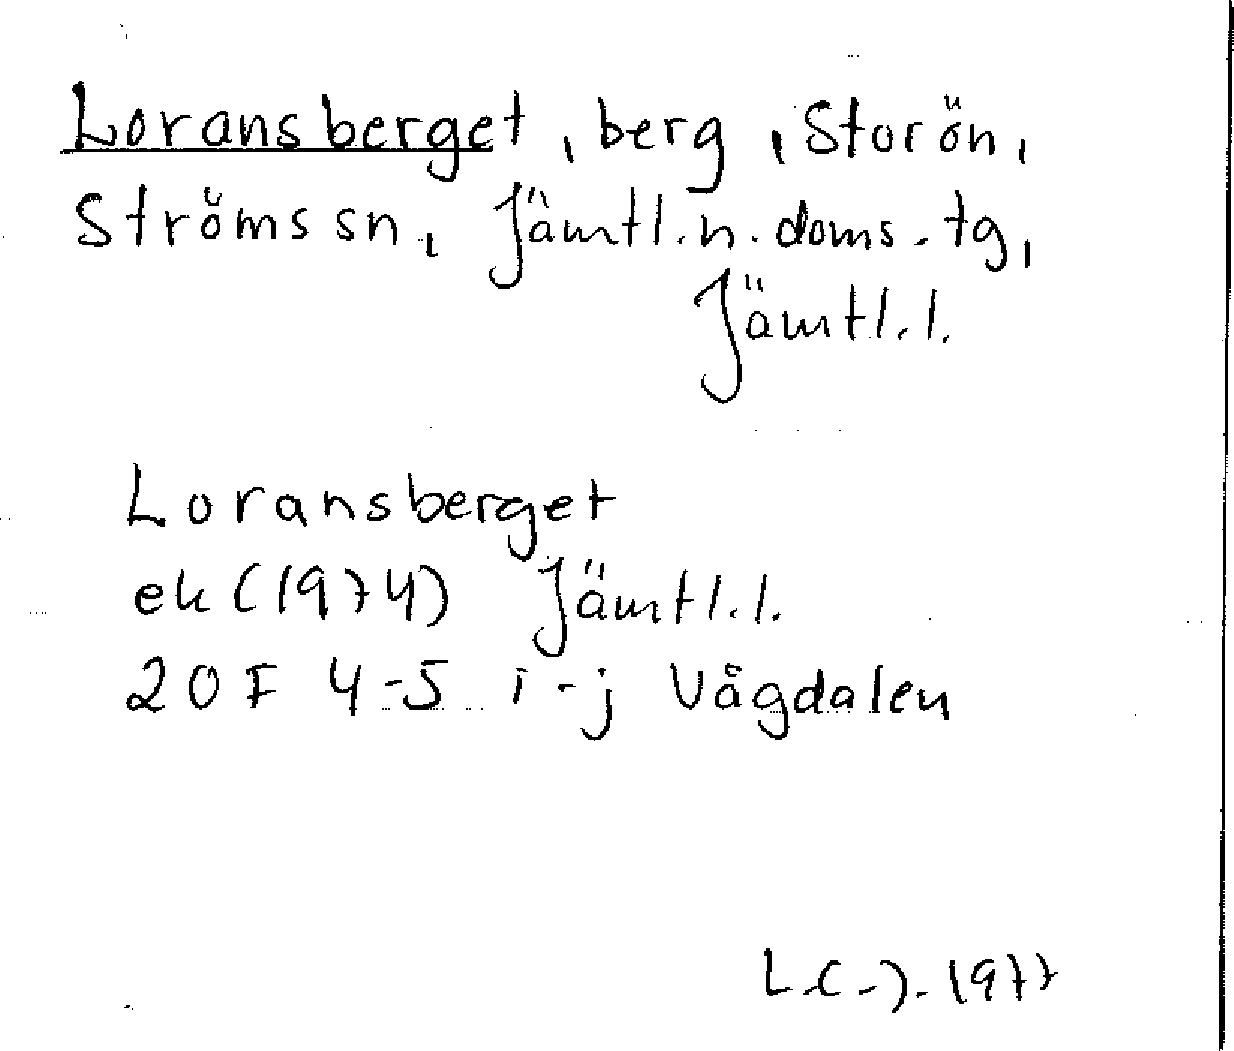 Loransberget, berg, Storön,
Ströms sn, Jämtl. n. doms. tg,
Jämtl. l.
Loransberget
ek (1974) Jämtl. l.
20 F 4-5 i-j Vågdalen
1977